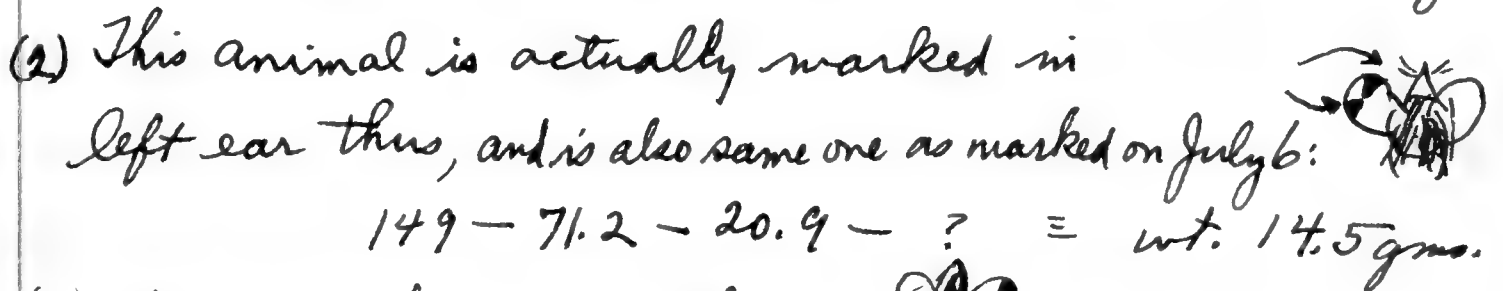 (2) This animal is actually marked in
left ear thus, and is also same one as marked on July 6:
149 - 71.2 - 20.9 - ? ≡ wt. 14.5 gms.